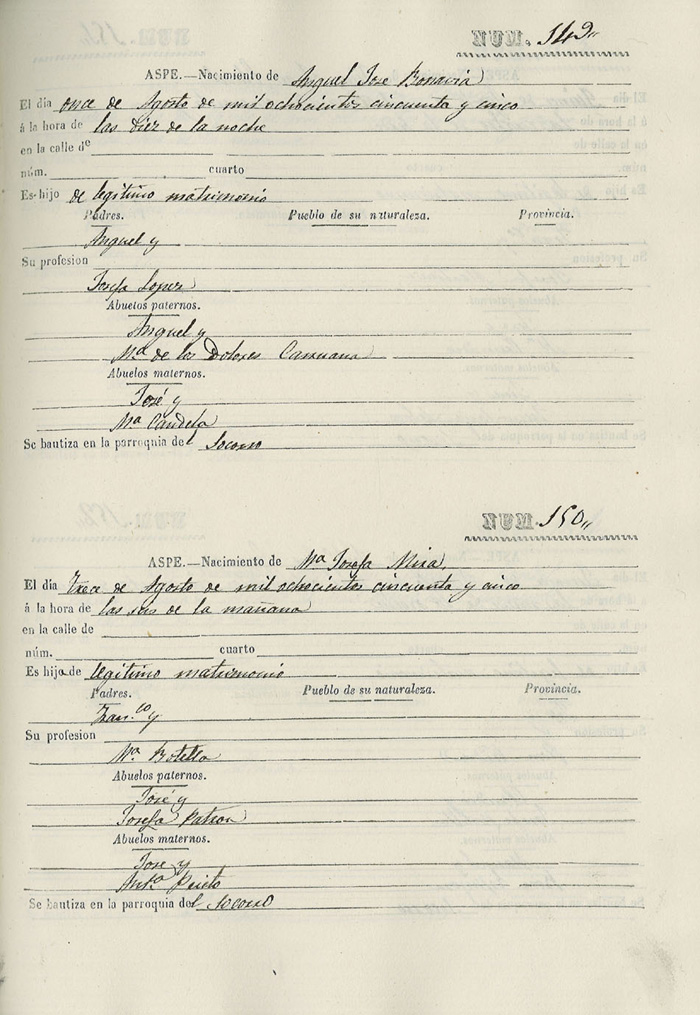 NUM. 149
ASPE.—Nacimiento de Anguel Jose Bonavia
El dia once de Agosto de mil ochocientos cincuenta y cinco
á la hora de las diez de la noche
en la calle de
núm. cuarto
Es hijo de legitimo matrimonio
Padres. Pueblo de su naturaleza. Provincia.
Anguel y
Su profesion
Josefa Lopez
Abuelos paternos.
Anguel y
Mª de los Dolores Carruana
Abuelos maternos.
José y
Mª Candela
Se bautiza en la parroquia del Socorro
NUM. 150
ASPE.—Nacimiento de Mª Josefa Mira
El dia trece de Agosto de mil ochocientos cincuenta y cinco
á la hora de las seis de la mañana
en la calle de
núm. cuarto
Es hija de legitimo matrimonio
Padres. Pueblo de su naturaleza. Provincia.
Fran.co y
Su profesion
Mª Botella
Abuelos paternos.
José y
Josefa Patron
Abuelos maternos.
Jose y
Ant.a Prieto
Se bautiza en la parroquia del Socorro